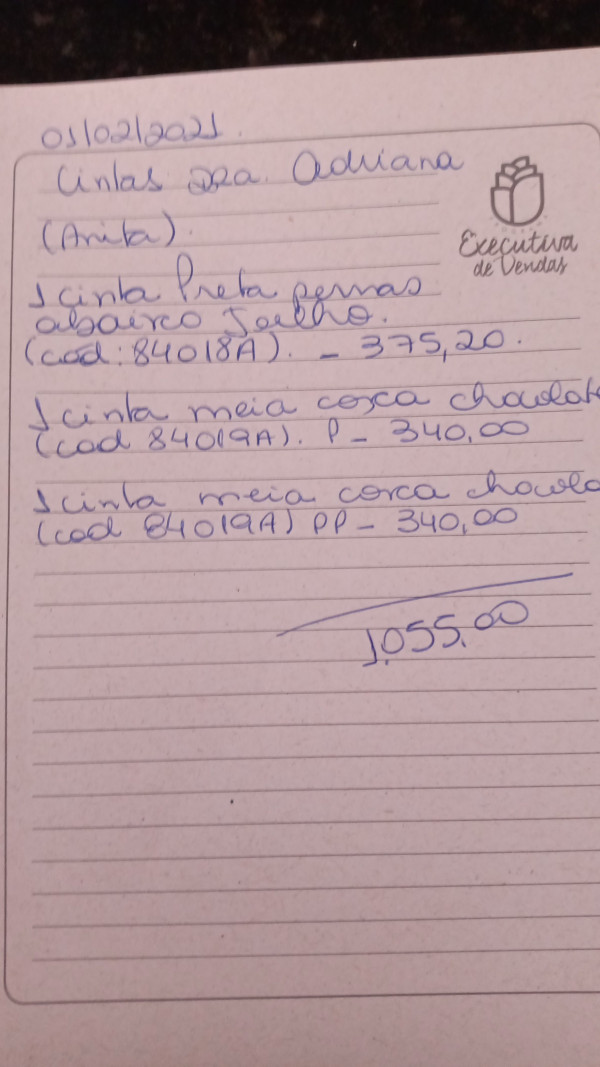 01/02/2021.
Cintas Dra. Adriana
(Anita).
Executiva
de Vendas
1 cinta Preta pernas
abaixo Joelho.
(cod: 84018A). - 375,20.
1 cinta meia coxa chocolat
(cod 84019A). P - 340,00
1 cinta meia coxa chocola
(cod 84019A) PP - 340,00
1.055,00